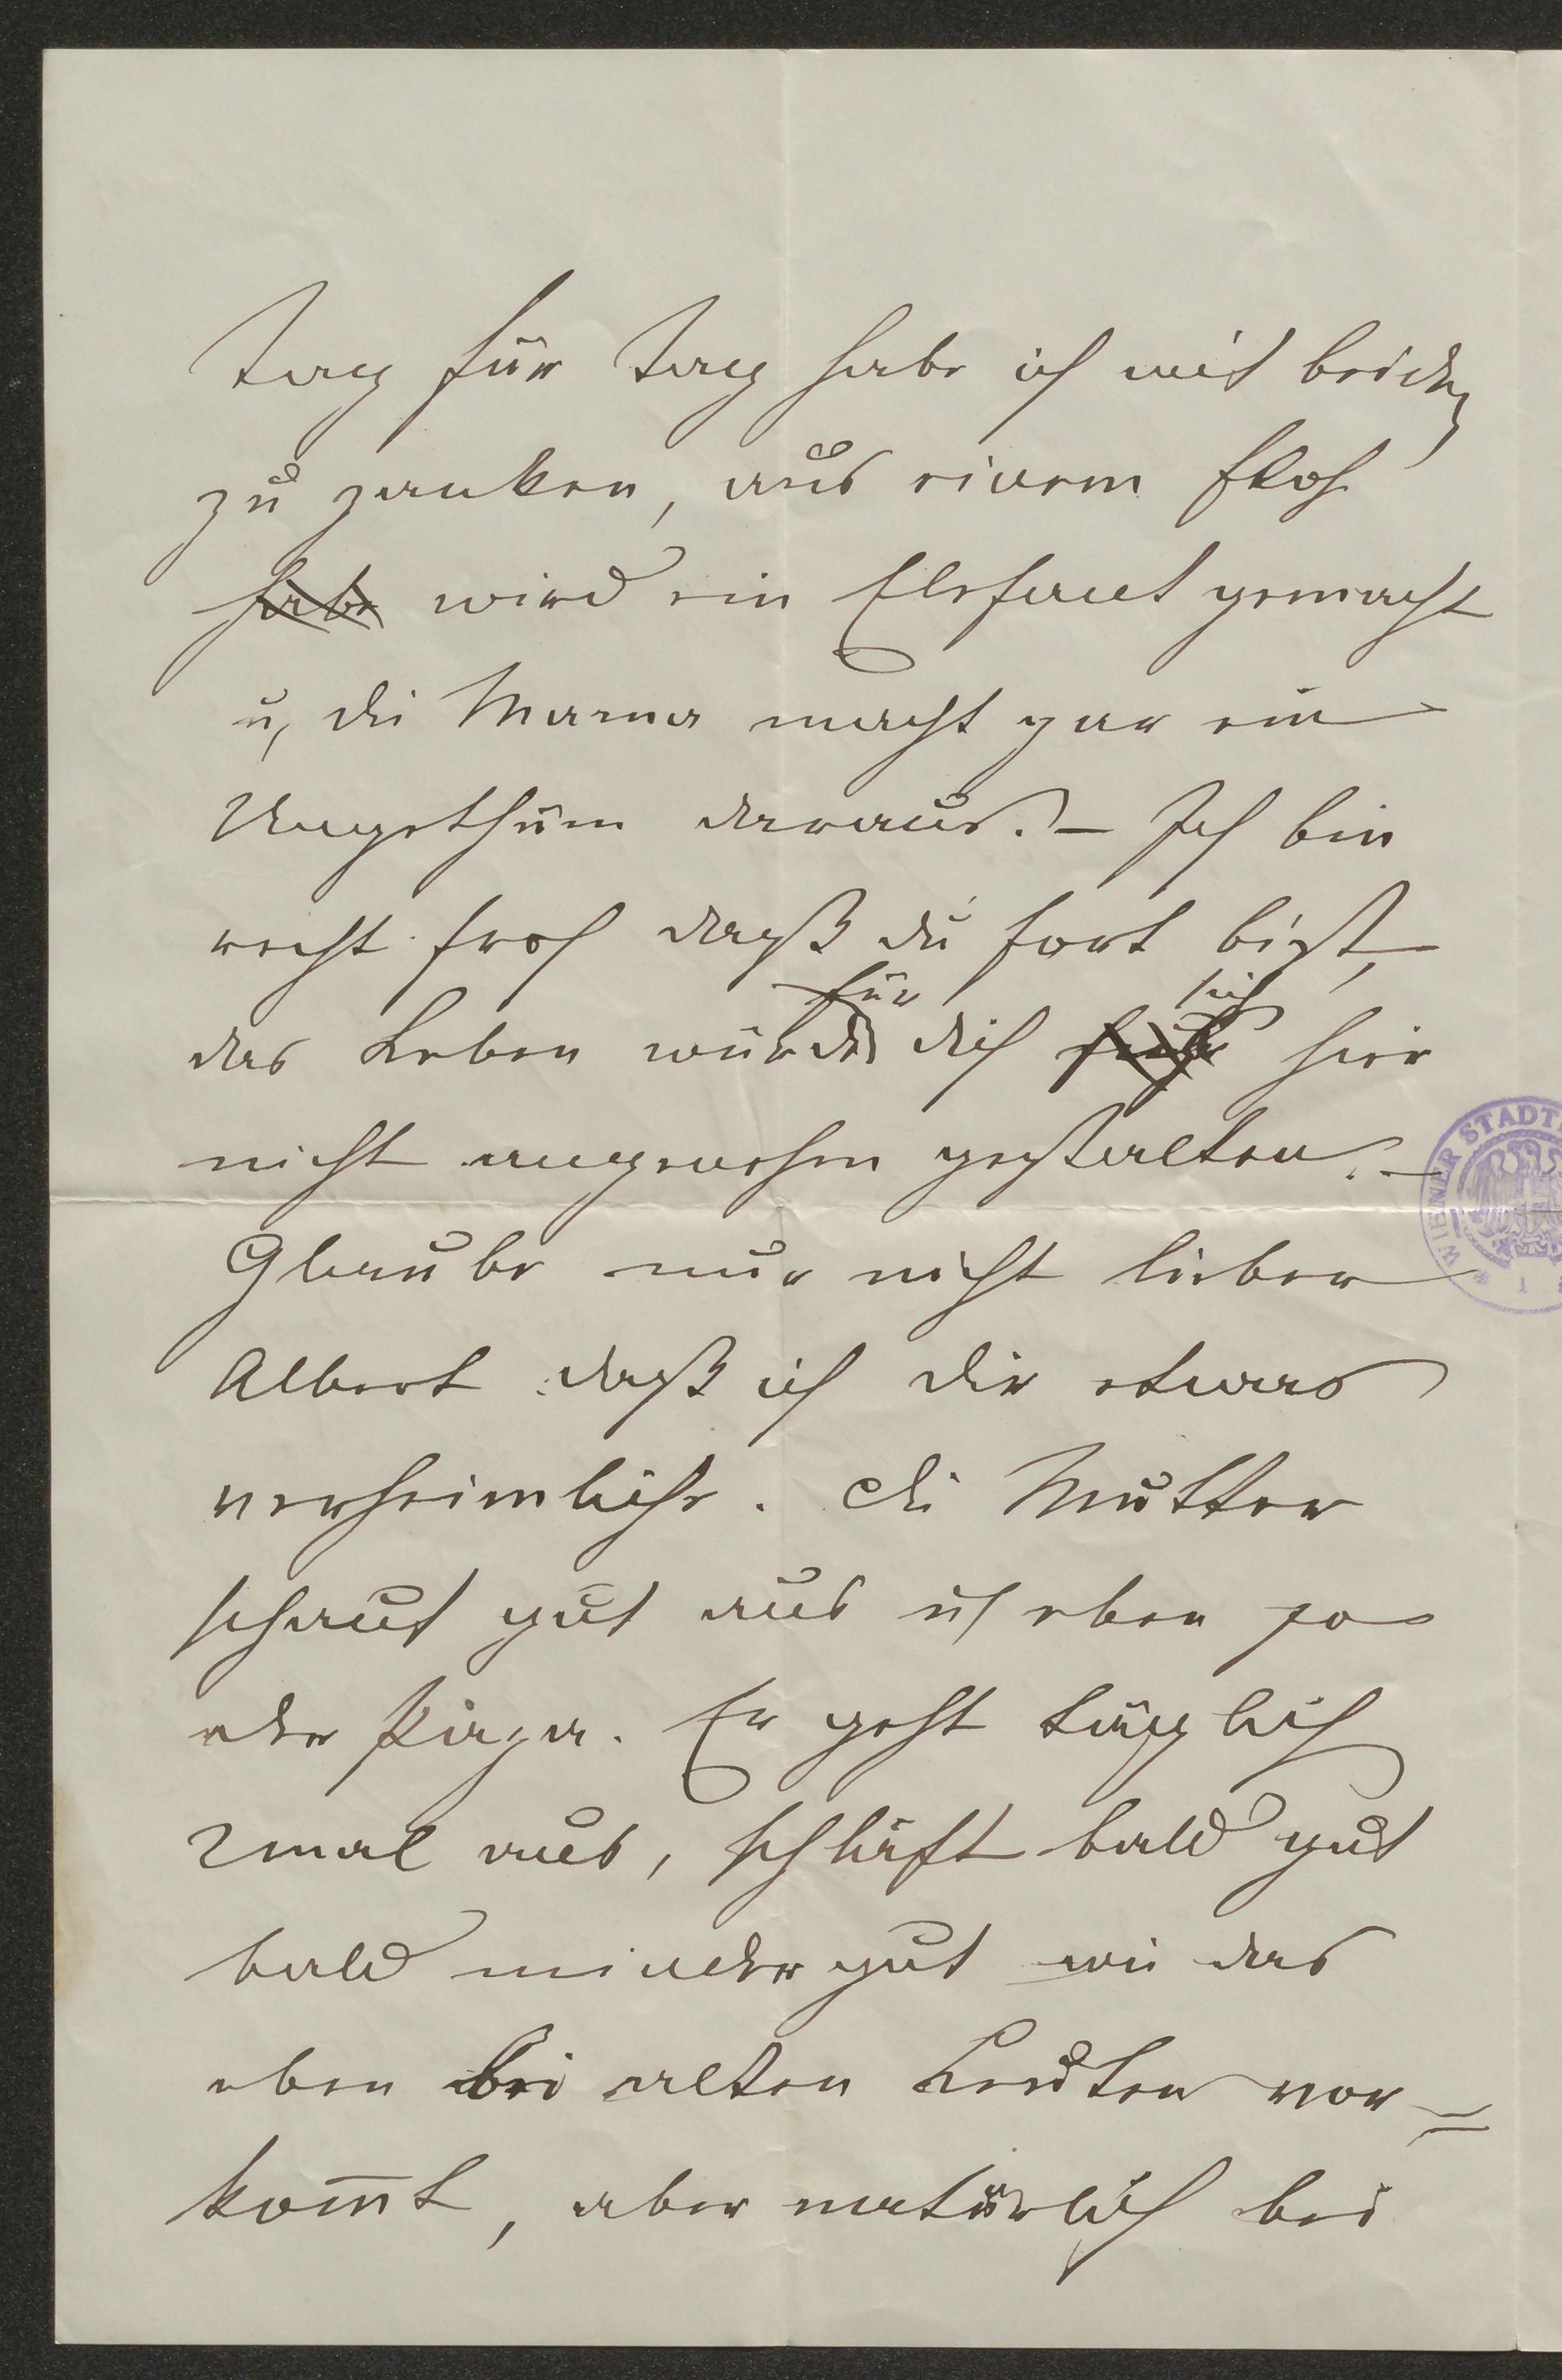 Tag für Tag habe ich mit beiden
zu zanken, aus einem Floh
habe wird ein Elefant gemacht
u, die Mama macht gar ein
Ungethüm daraus. – Ich bin
recht froh daß du fort bist,
für sich
das Leben würde dich hier
nicht angenehm gestalten. –
Glaube nur nicht lieber
Albert daß ich dir etwas
verheimliche. Die Mutter
schaut gut aus u, eben so
der Papa. Er geht täglich
2mal aus, schläft bald gut
bald minder gut wie das
eben bei alten Leuten vor=
kom̅t, aber natürlich bei
WIENER STADT